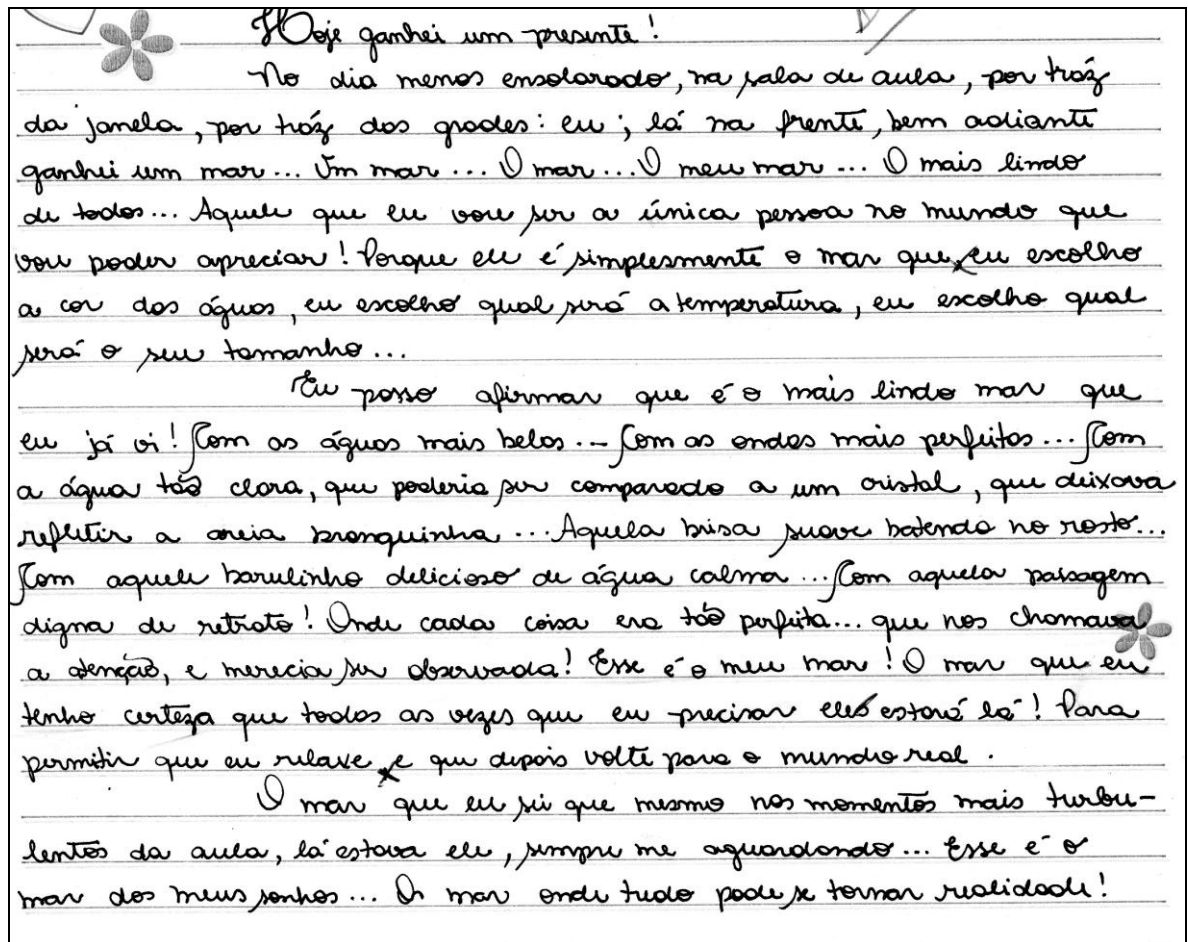 Hoje ganhei um presente!
No dia menos ensolarado, na sala de aula, por tráz
da janela, por tráz das grades: eu; lá na frente, bem adiante
ganhei um mar... Um mar... O mar... O meu mar... O mais lindo
de todos... Aquele que eu vou ser a única pessoa no mundo que
vou poder apreciar! Porque ele é simplesmente o mar que eu escolho
a cor das águas, eu escolho qual será a temperatura, eu escolho qual
será o seu tamanho...
Eu posso afirmar que é o mais lindo mar que
eu já vi! Com as águas mais belas... Com as ondas mais perfeitas... Com
a água tão clara, que poderia ser comparado a um cristal, que deixava
refletir a areia branquinha... Aquela brisa suave batendo no rosto...
Com aquele barulinho delicioso de água calma... Com aquela paisagem
digna de retrato! Onde cada coisa era tão perfeita... que nos chamava
a atenção, e merecia ser observada! Esse é o meu mar! O mar que eu
tenho certeza que todas as vezes que eu precisar ele estará lá! Para
permitir que eu relaxe e que depois volte para o mundo real.
O mar que eu sei que mesmo nos momentos mais turbu-
lentos da aula, lá estava ele, sempre me aguardando... Esse é o
mar dos meus sonhos... O mar onde tudo pode se tornar realidade!